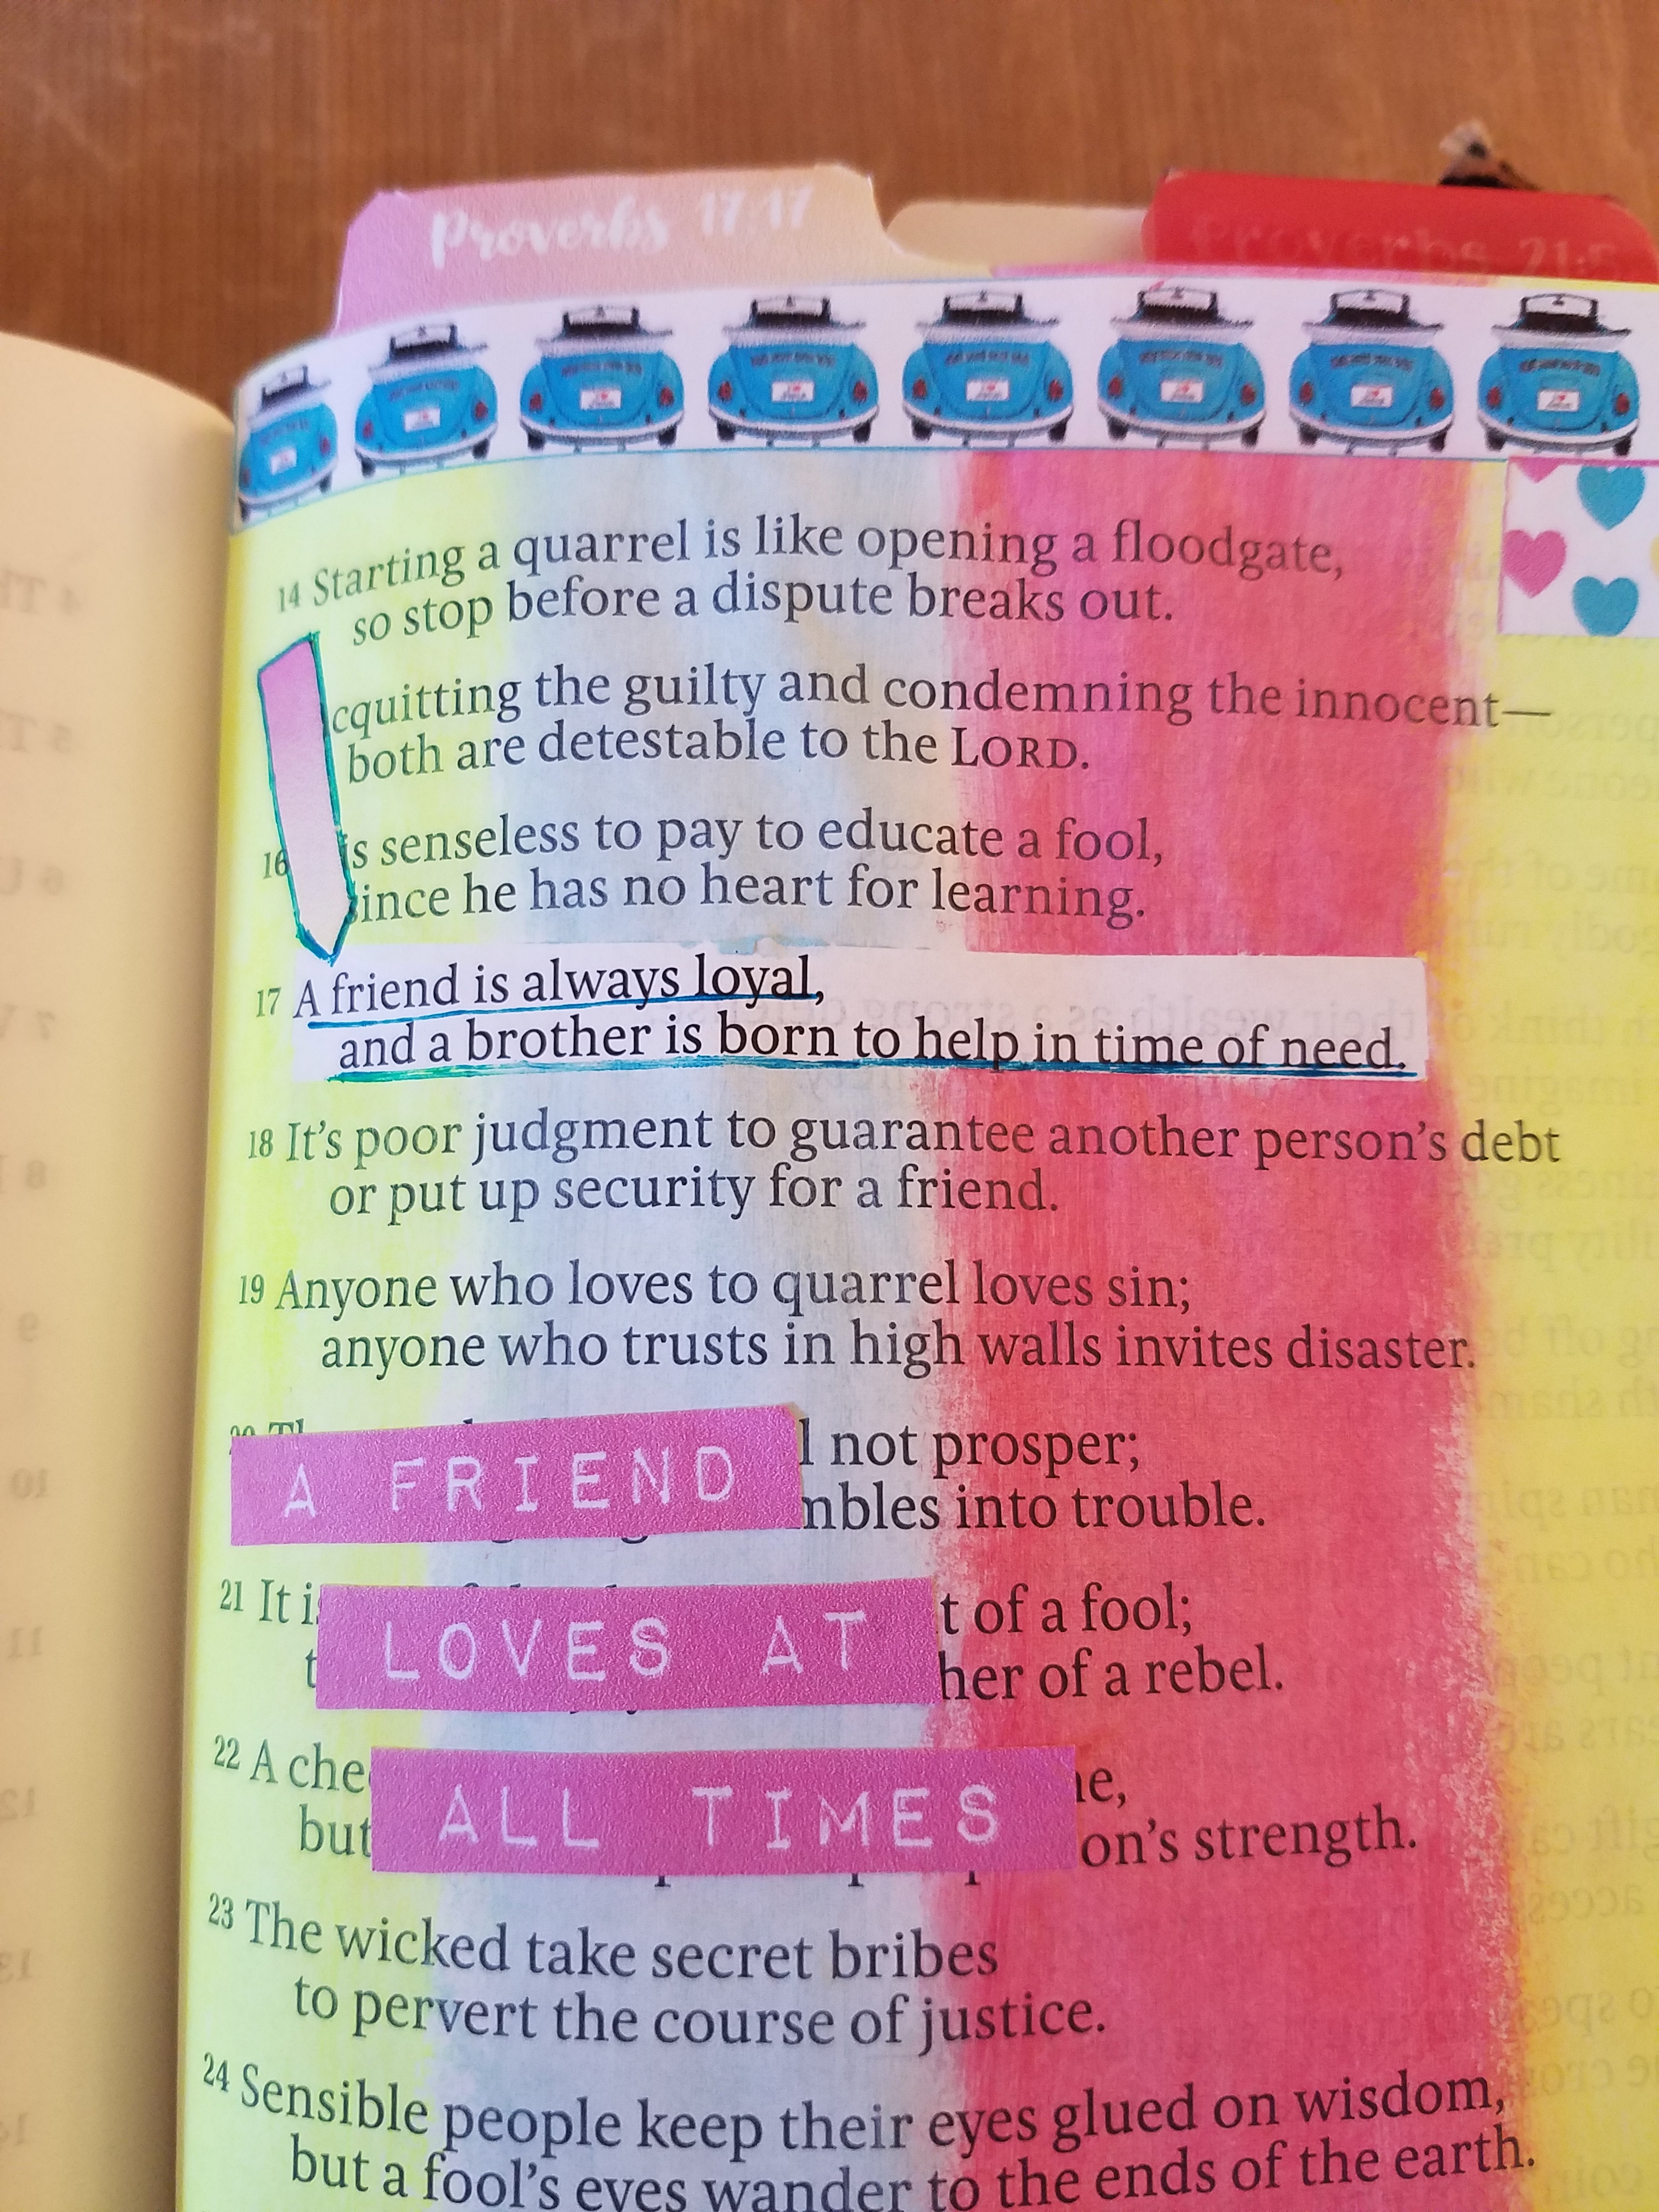 Proverbs 17:17
Proverbs 21:5
14 Starting a quarrel is like opening a floodgate,
so stop before a dispute breaks out.
cquitting the guilty and condemning the innocent—
both are detestable to the LORD.
16 is senseless to pay to educate a fool,
since he has no heart for learning.
17 A friend is always loyal,
and a brother is born to help in time of need.
18 It's poor judgment to guarantee another person's debt
or put up security for a friend.
19 Anyone who loves to quarrel loves sin;
anyone who trusts in high walls invites disaster.
l not prosper;
A FRIEND
mbles into trouble.
21 It is t of a fool;
LOVES AT
t her of a rebel.
22 A che e,
ALL TIMES
but on's strength.
23 The wicked take secret bribes
to pervert the course of justice.
24 Sensible people keep their eyes glued on wisdom,
but a fool's eyes wander to the ends of the earth.